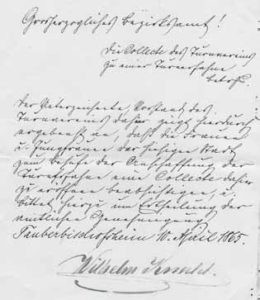 Großherzogliches Bezirksamt!
Die Collecte des Turnvereins
zu einer Turnerfahne
betrf.
Der Unterzeichnete, Vorstand des
Turnvereins dahier zeigt hierdurch
ergebenst an, daß die Frauen
u. Jungfrauen der hiesigen Stadt
zum Behufe der Anschaffung der
Turnerfahne eine Collecte dahier
zu eröffnen beabsichtigen, u.
bittet hierzu um Ertheilung der
amtlichen Genehmigung
Tauberbischofsheim 10. April 1865.
Wilhelm